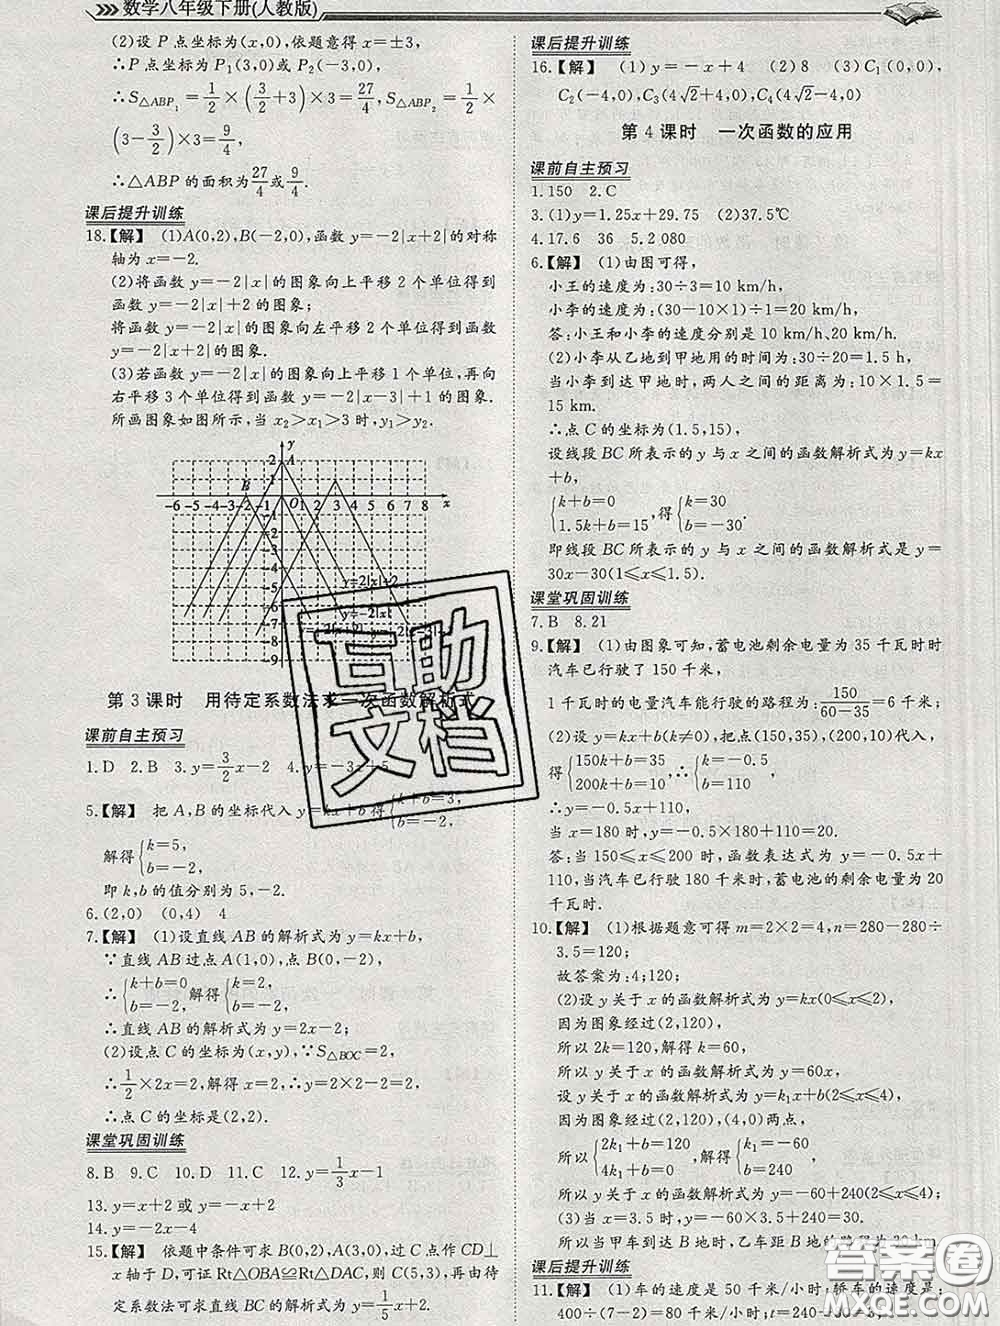 数学八年级下册(人教版)
(2)设 P 点坐标为(x,0),依题意得 x=±3,
∴P 点坐标为 P₁(3,0)或 P₂(-3,0),
∴S△ABP₁=1/2×(3/2+3)×3=27/4,S△ABP₂=1/2×
(3-3/2)×3=9/4,
∴△ABP 的面积为27/4或9/4.
课后提升训练
18.【解】 (1)A(0,2),B(-2,0),函数 y=-2|x+2|的对称
轴为 x=-2.
(2)将函数 y=-2|x|的图象向上平移 2 个单位得到
函数 y=-2|x|+2 的图象;
将函数 y=-2|x|的图象向左平移 2 个单位得到函数
y=-2|x+2|的图象.
(3)若函数 y=-2|x|的图象向上平移 1 个单位,再向
右平移 3 个单位得到函数 y=-2|x-3|+1 的图象.
所画图象如图所示,当 x₂>x₁>3 时,y₁>y₂.
y
2 A
1
B O
-6 -5 -4 -3 -2 -1 1 2 3 4 5 6 7 8 x
y=-2|x|+2
y=-2|x|
-9
第 3 课时 用待定系数法求一次函数解析式
课前自主预习
1.D 2.B 3.y=3/2x-2 4.y=-3x+5
5.【解】 把 A,B 的坐标代入 y=kx+b 得{k+b=3, b=-2,
解得{k=5, b=-2,
即 k,b 的值分别为 5,-2.
6.(2,0) (0,4) 4
7.【解】 (1)设直线 AB 的解析式为 y=kx+b,
∵直线 AB 过点 A(1,0),点 B(0,-2),
∴{k+b=0 b=-2,解得{k=2 b=-2,
∴直线 AB 的解析式为 y=2x-2;
(2)设点 C 的坐标为(x,y),∵S△BOC=2,
∴1/2×2x=2,解得 x=2,∴y=2×2-2=2,
∴点 C 的坐标是(2,2).
课堂巩固训练
8.B 9.C 10.D 11.C 12.y=1/3x-1
13.y=x+2 或 y=-x+2
14.y=-2x-4
15.【解】 依题中条件可求 B(0,2),A(3,0),过 C 点作 CD⊥
x 轴于 D,可证 Rt△OBA≌Rt△DAC,则 C(5,3),再由待
定系数法可求直线 BC 的解析式为 y=1/5x+2.
课后提升训练
16.【解】 (1)y=-x+4 (2)8 (3)C₁(0,0),
C₂(-4,0),C₃(4√2+4,0),C₄(4√2-4,0)
第 4 课时 一次函数的应用
课前自主预习
1.150 2.C
3.(1)y=1.25x+29.75 (2)37.5℃
4.17.6 36 5.2 080
6.【解】 (1)由图可得,
小王的速度为:30÷3=10 km/h,
小李的速度为:(30-10×1)÷1=20 km/h,
答:小王和小李的速度分别是 10 km/h、20 km/h.
(2)小李从乙地到甲地用的时间为:30÷20=1.5 h,
当小李到达甲地时,两人之间的距离为:10×1.5=
15 km.
∴点 C 的坐标为(1.5,15),
设线段 BC 所表示的 y 与 x 之间的函数解析式为 y=kx
+b,
{k+b=0 1.5k+b=15,得{k=30 b=-30.
即线段 BC 所表示的 y 与 x 之间的函数解析式是 y=
30x-30(1⩽x⩽1.5).
课堂巩固训练
7.B 8.21
9.【解】 (1)由图象可知,蓄电池剩余电量为 35 千瓦时时
汽车已行驶了 150 千米,
1 千瓦时的电量汽车能行驶的路程为:150/(60-35)=6 千米;
(2)设 y=kx+b(k≠0),把点(150,35),(200,10)代入,
得{150k+b=35 200k+b=10,∴{k=-0.5 b=110,
∴y=-0.5x+110,
当 x=180 时,y=-0.5×180+110=20.
答:当 150⩽x⩽200 时,函数表达式为 y=-0.5x+
110,当汽车已行驶 180 千米时,蓄电池的剩余电量为 20
千瓦时.
10.【解】 (1)根据题意可得 m=2×2=4,n=280-280÷
3.5=120;
故答案为:4;120;
(2)设 y 关于 x 的函数解析式为 y=kx(0⩽x⩽2),
因为图象经过(2,120),
所以 2k=120,解得 k=60,
所以 y 关于 x 的函数解析式为 y=60x,
设 y 关于 x 的函数解析式为 y=k₁x+b(2⩽x⩽4),
因为图象经过(2,120),(4,0)两点,
所以{2k₁+b=120 4k₁+b=0,解得{k₁=-60 b=240,
所以 y 关于 x 的函数解析式为 y=-60x+240(2⩽x⩽4);
(3)当 x=3.5 时,y=-60×3.5+240=30.
所以当甲车到达 B 地时,乙车距 B 地的路程为
课后提升训练
11.【解】 (1)车的速度是 50 千米/小时;轿车的速度是:
400÷(7-2)=80 千米/小时;t=240÷80=3.
互助
文档
答案圈
MXQE.COM